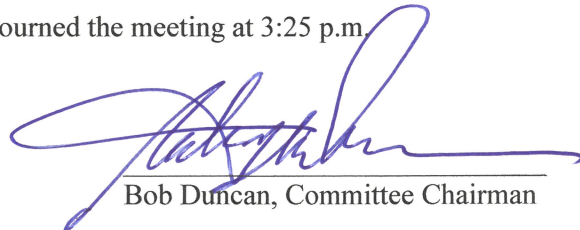 ourned the meeting at 3:25 p.m.
Bob Duncan, Committee Chairman